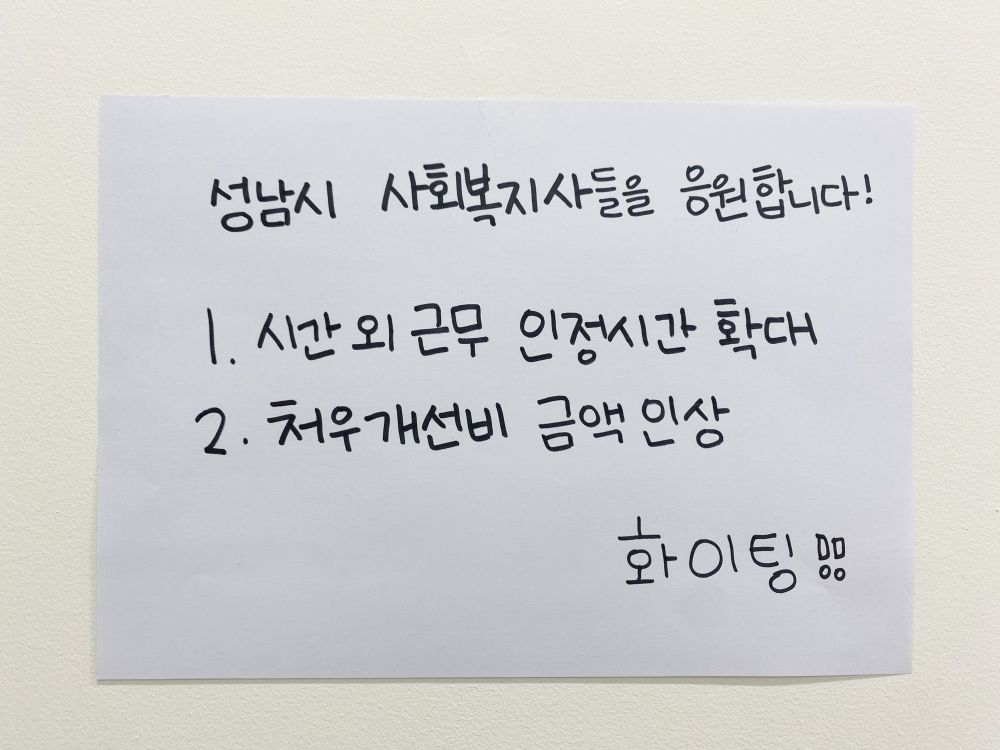 성남시 사회복지사들을 응원합니다!
1. 시간 외 근무 인정시간 확대
2. 처우개선비 금액 인상
화이팅!!